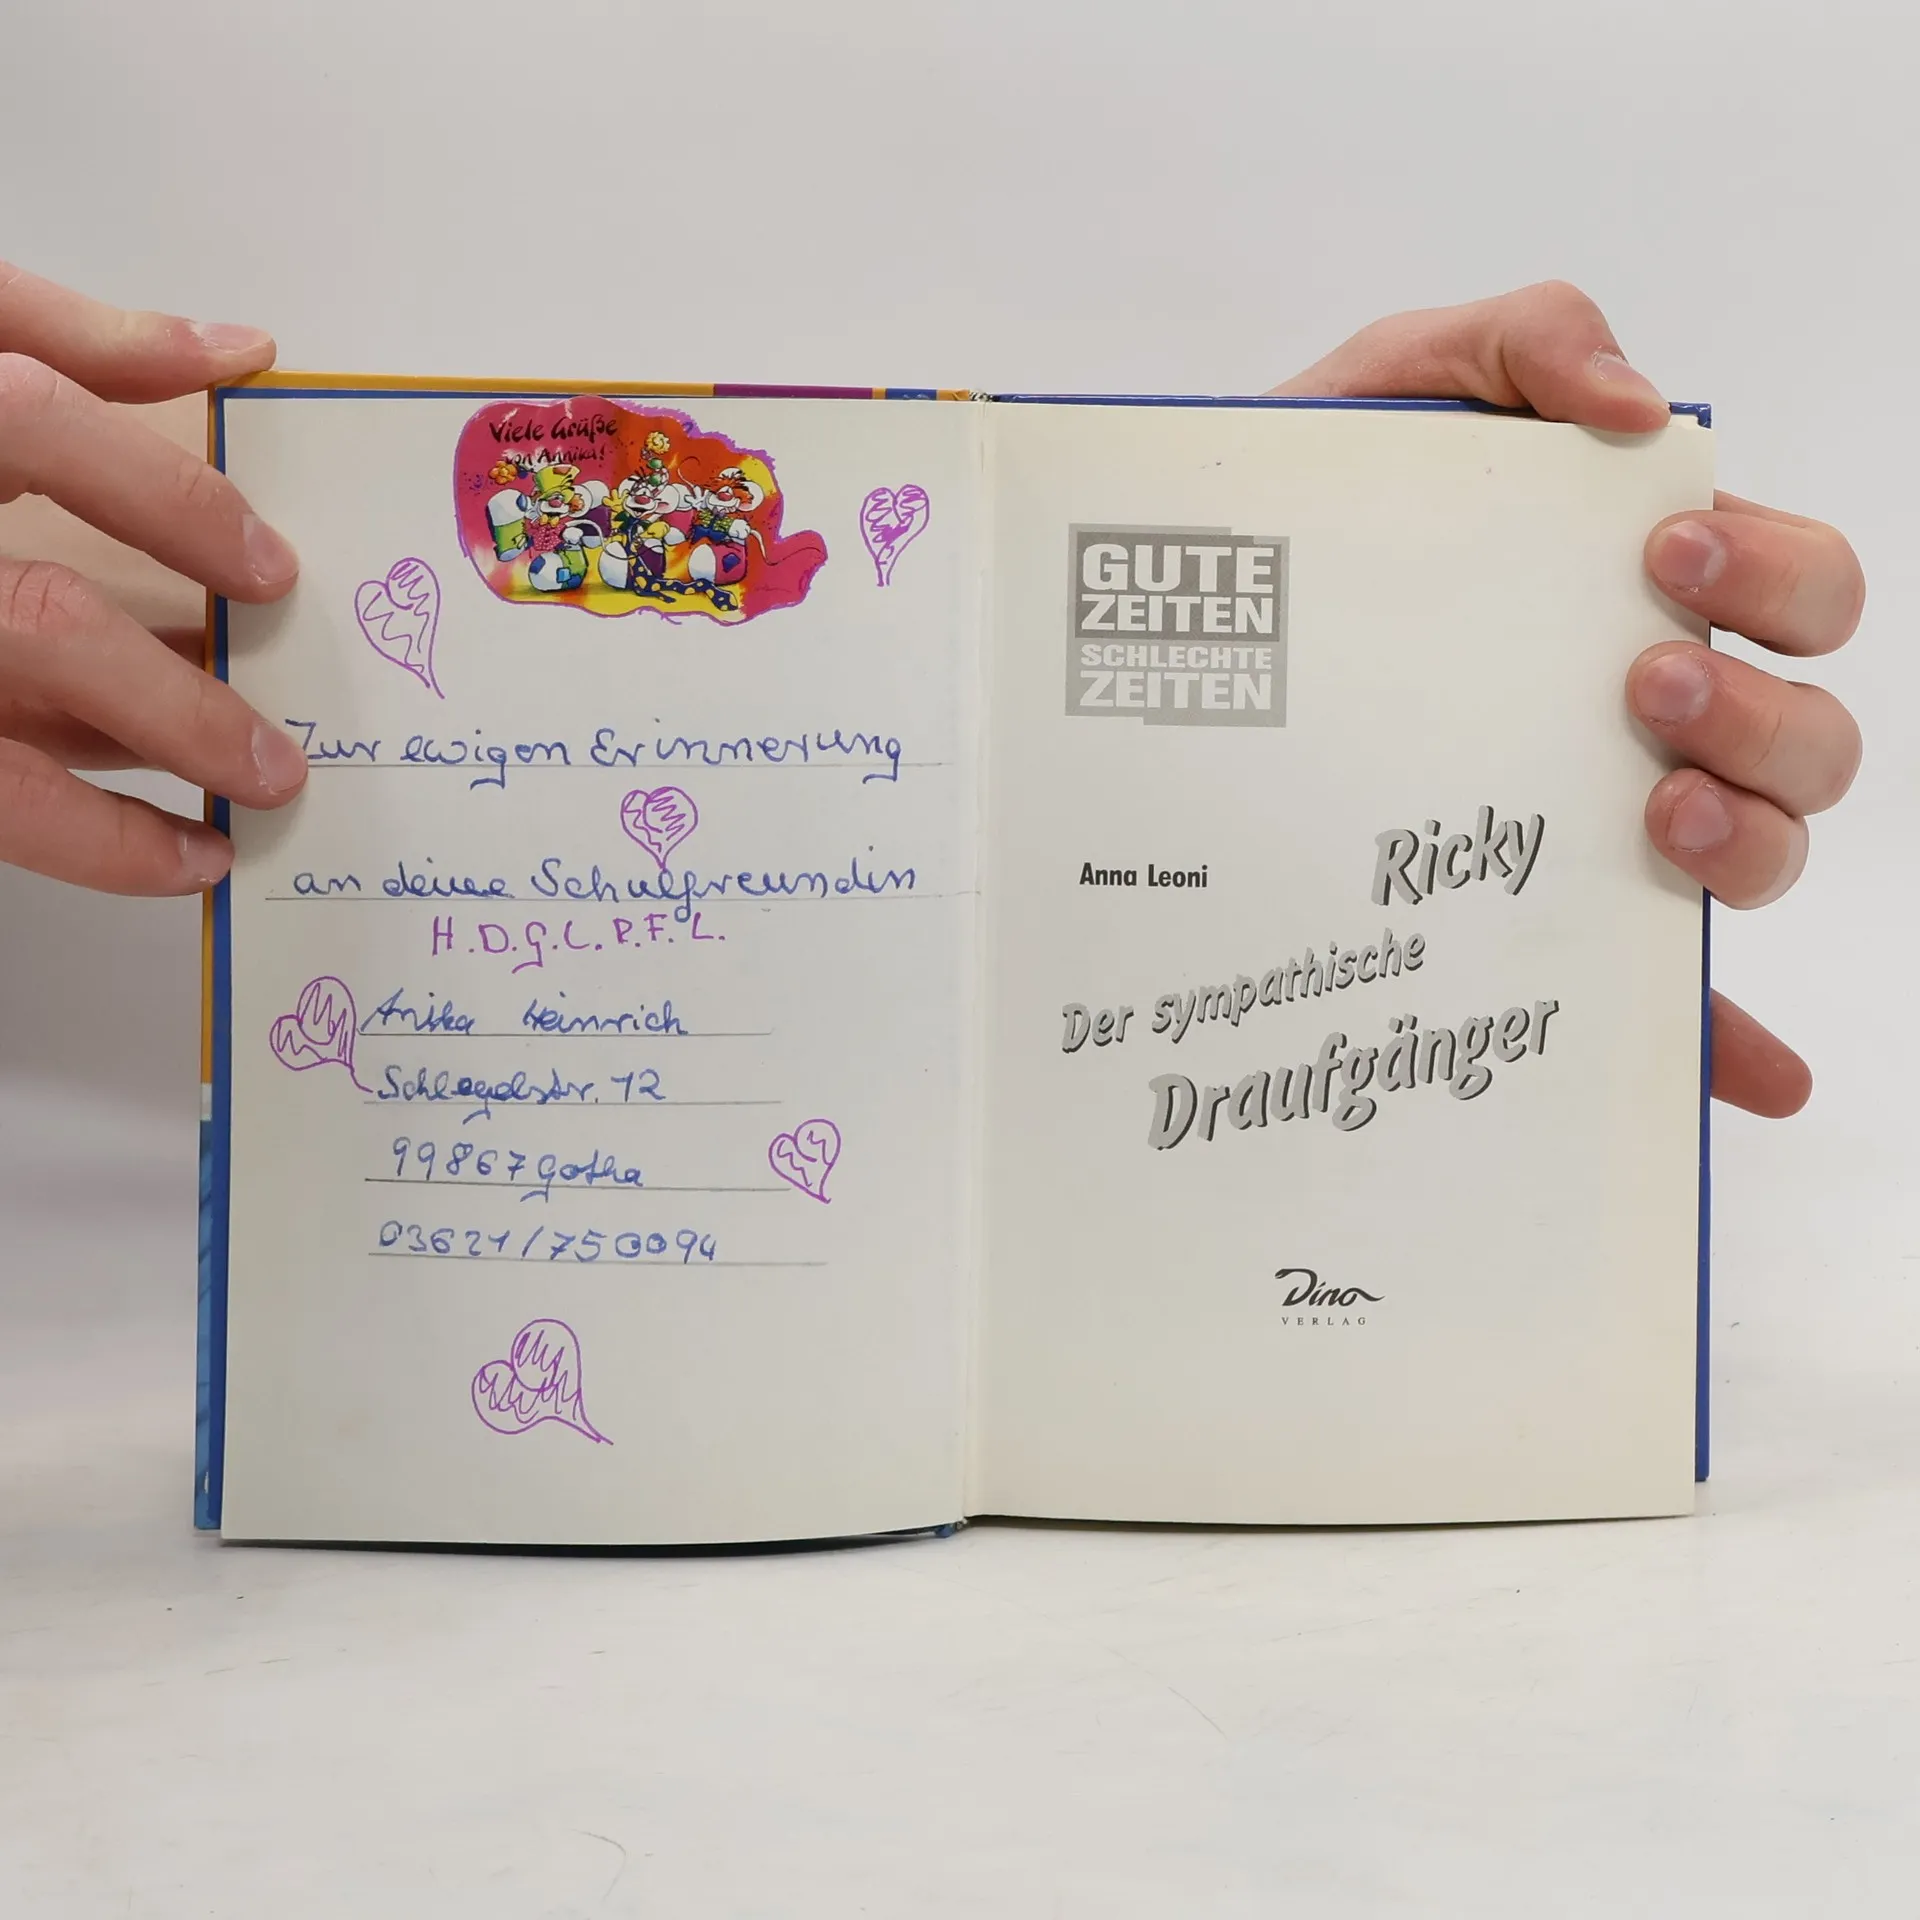 Viele Grüße
von Annika!
Zur ewigen Erinnerung
an deine Schulfreundin
H.D.G.L.P.F.L.
Anika Heinrich
Schlegelstr. 12
99867 Gotha
03621/750094
GUTE
ZEITEN
SCHLECHTE
ZEITEN
Anna Leoni
Ricky
Der sympathische
Draufgänger
Dino
VERLAG